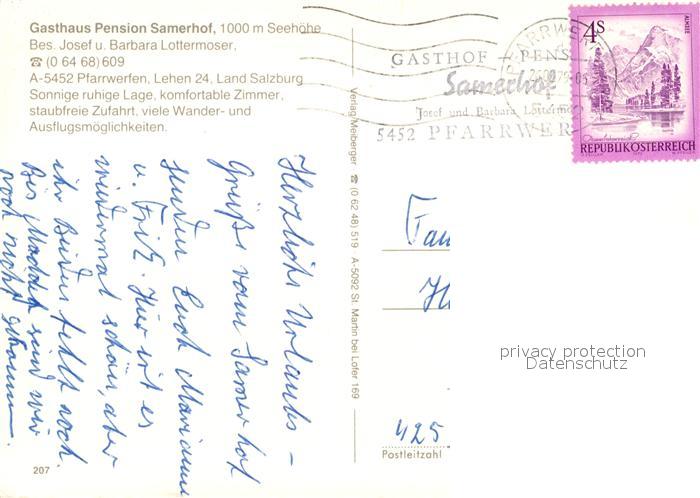 Gasthaus Pension Samerhof, 1000 m Seehöhe
Bes. Josef u. Barbara Lottermoser,
☎ (0 64 68) 609
A-5452 Pfarrwerfen, Lehen 24, Land Salzburg
Sonnige ruhige Lage, komfortable Zimmer,
staubfreie Zufahrt, viele Wander- und
Ausflugsmöglichkeiten.
GASTHOF - PENS
Samerhof
Josef und Barbara Lottermo
5452 PFARRWER
PFARRWE
4S
ALMSEE
REPUBLIK ÖSTERREICH
Verlag Meiberger ☎ (0 62 48) 519 A-5092 St. Martin bei Lofer 169
Herzliche Urlaubs-
Grüße vom Samerhof
senden Euch Marianne
u. Fritz. Hier ist es
wiedermal schön, aber
ihr Beiden fehlt noch.
Bis jetzt sind wir
noch nicht
Fam
H
425
Postleitzahl
207
privacy protection
Datenschutz